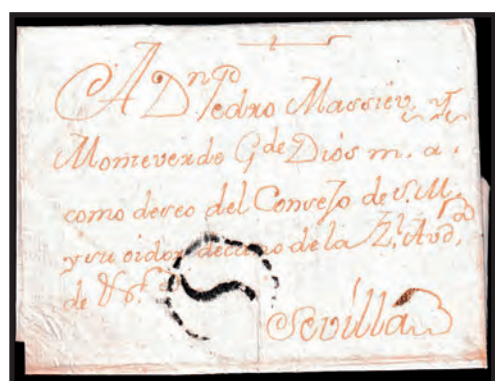 A Dⁿ Pedro Massieu y
Monteverde G.de Dios m. a.
como deseo del Consejo de S.M.
y su oidor decano de la Rˡ Audª
de
Sevilla